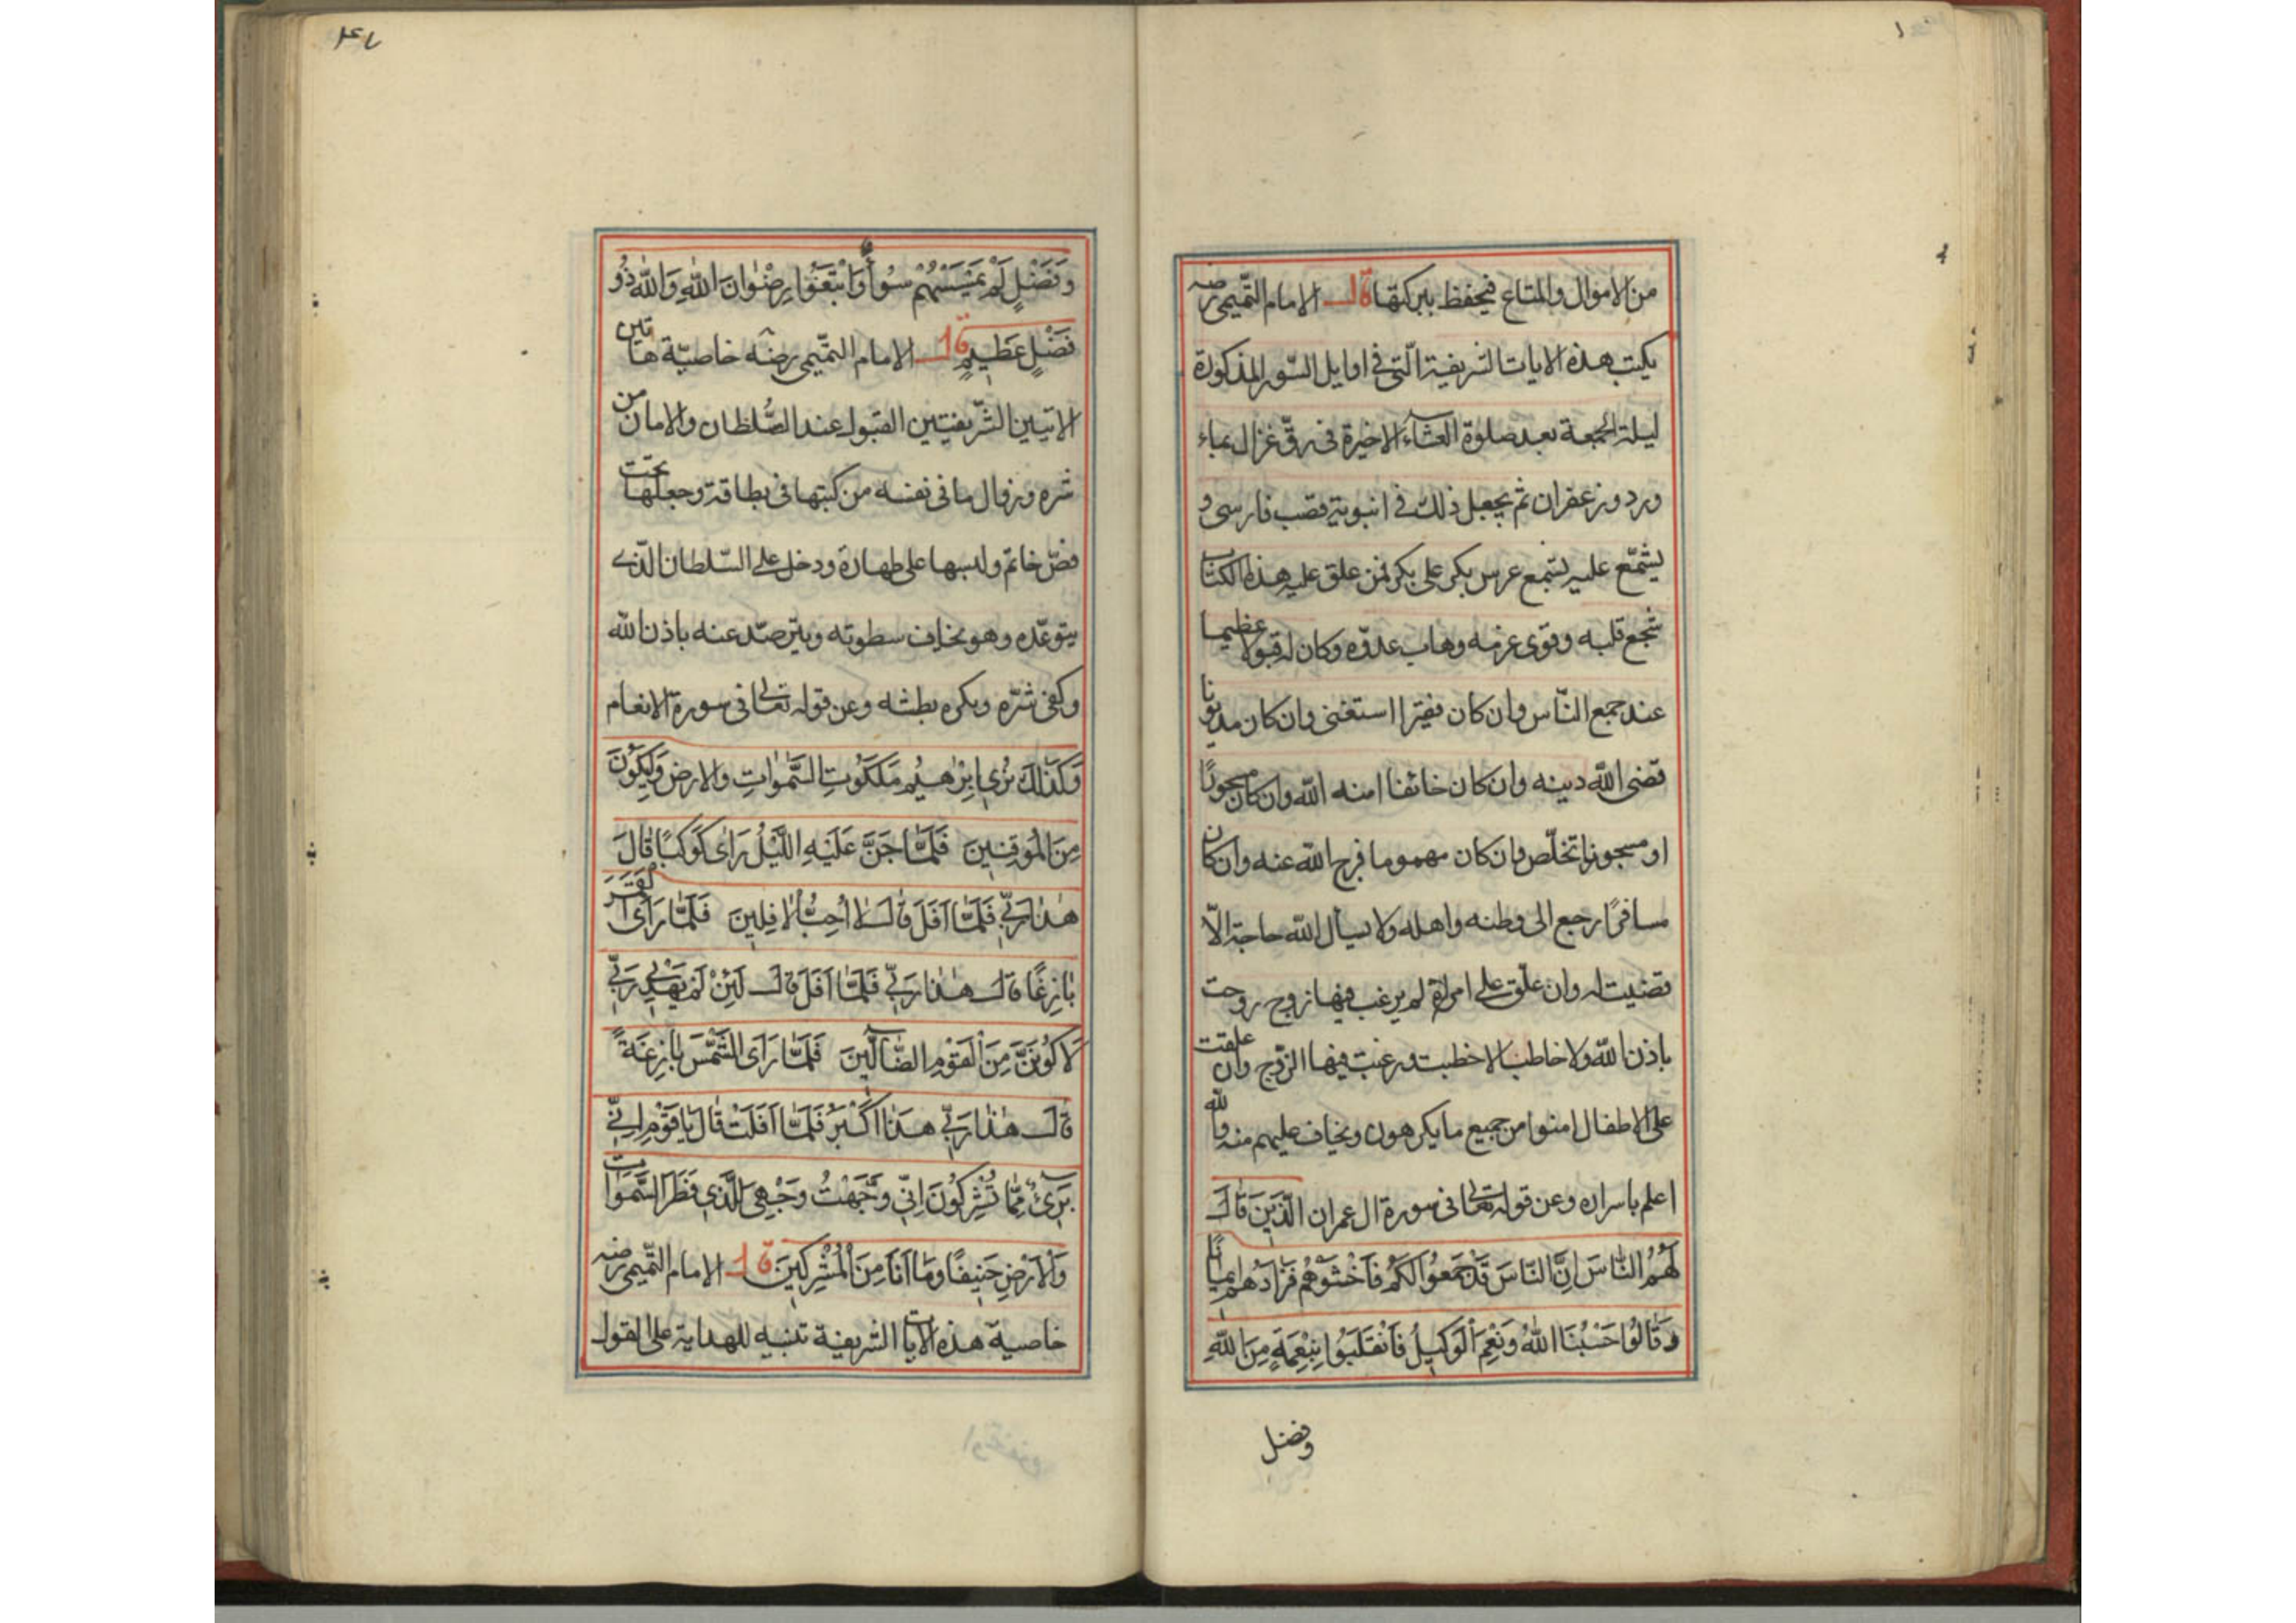 من الاموال والمتاع فيحفظ ببركتها قال الامام التميمي رضه
يكتب هذه الايات الشريفة الّتي في اوايل السّور المذكورة
ليلة الجمعة بعد صلوة العشآء الاخيرة في رقّ غزال بماء
ورد وزعفران ثم يجعل ذلك في انبوبة قصب فارسى و
يشمّع عليه بشمع عرس بكر على بكر فمن علق عليه هذا الكتاب
شجع قلبه وقوى عزمه وهاب عدوّه وكان له قبولا عظيما
عند جميع النّاس وان كان فقيرا استغنى وان كان مديونا
قضى اللّه دينه وان كان خائفا امنه اللّه وان كان
او مسجونا تخلّص وان كان مهموما فرج اللّه عنه وان كان
مسافرًا رجع الى وطنه واهله ولا يسأل اللّه حاجة الاّ
قضيت له وان علّق على امراة لم يرغب فيها زوج زوجت
باذن اللّه ولا خاطب الا خطبت ورغبت فيها الزّوج وان علقت
على الاطفال امنوا من جميع ما يكرهون ويخاف عليهم منه واللّه
اعلم باسراره وعن قوله تعالى في سورة ال عمران الَّذِينَ قَالَ
لَهُمُ النَّاسُ اِنَّ النَّاسَ قَدْ جَمَعُوا لَكُمْ فَاخْشَوْهُمْ فَزَادَهُمْ اِيمَانًا
وَقَالُوا حَسْبُنَا اللّٰهُ وَنِعْمَ الْوَكِيلُ فَانْقَلَبُوا بِنِعْمَةٍ مِنَ اللّٰهِ
وفضل
وَفَضْلٍ لَمْ يَمْسَسْهُمْ سُوءٌ وَاتَّبَعُوا رِضْوَانَ اللّٰهِ وَاللّٰهُ ذُو
فَضْلٍ عَظِيمٍ قال الامام التّميمى رضه خاصيّة هاتين
الايتين الشّريفتين القبول عند السُّلطان والامان من
شره وزوال ما في نفسه من كتبها في بطاقة وجعلها تحت
فصّ خاتم ولبسها على طهارة ودخل على السّلطان الّذي
يتوعّده وهو يخاف سطوته صدّ عنه باذن اللّه
وكفى شرّه بطشه وعن قوله تعالى في سورة الانعام
وَكَذٰلِكَ نُرِي اِبْرٰهِيمَ مَلَكُوتَ السَّمٰوَاتِ والارض وَلِيَكُونَ
مِنَ الْمُوقِنِينَ فَلَمَّا جَنَّ عَلَيْهِ اللَّيْلُ رَاٰى كَوْكَبًا قَالَ
هٰذَا رَبِّي فَلَمَّا اَفَلَ قَالَ لَا اُحِبُّ الْاٰفِلِينَ فَلَمَّا رَاَى الْقَمَرَ
بَازِغًا قَالَ هٰذَا رَبِّي فَلَمَّا اَفَلَ قَالَ لَئِنْ لَمْ يَهْدِنِي رَبِّي
لَاَكُونَنَّ مِنَ الْقَوْمِ الضَّالِّينَ فَلَمَّا رَاَى الشَّمْسَ بَازِغَةً
قَالَ هٰذَا رَبِّي هٰذَا اَكْبَرُ فَلَمَّا اَفَلَتْ قَالَ يَا قَوْمِ اِنِّي
بَرِىءٌ مِمَّا تُشْرِكُونَ اِنِّي وَجَّهْتُ وَجْهِيَ لِلَّذِي فَطَرَ السَّمٰوَاتِ
وَالْاَرْضَ حَنِيفًا وَمَا اَنَا مِنَ الْمُشْرِكِينَ قال الامام التّميمى رضه
خاصية هذه الايات الشريفة تنبيه للهداية على القول